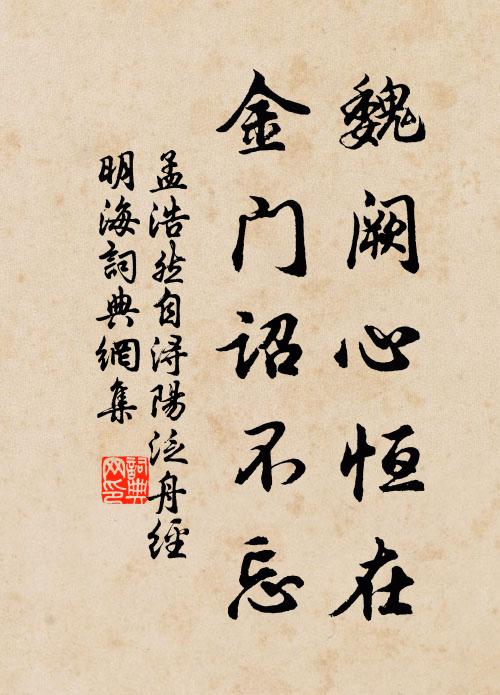 魏阙心恒在
金门诏不忘
孟浩然自浔陽泛舟經
明海詞典網集
詞典
网印